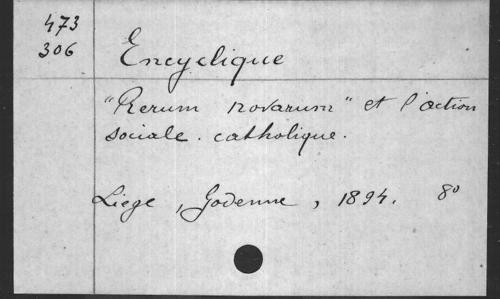 473
306
Encyclique
"Rerum novarum" et l'action
sociale. catholique.
Liege, Godenne, 1894. 8o